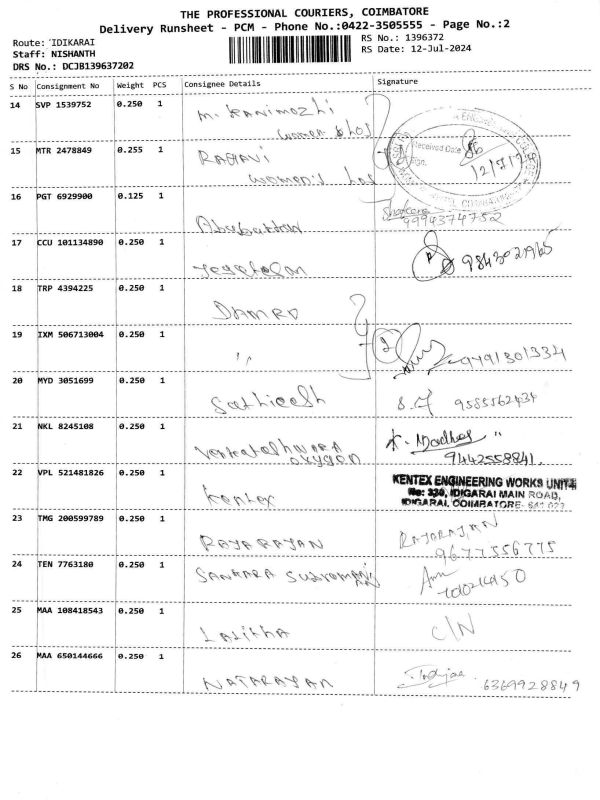 THE PROFESSIONAL COURIERS, COIMBATORE
Delivery Runsheet - PCM - Phone No.:0422-3505555 - Page No.:2
Route: IDIKARAI
RS No.: 1396372
Staff: NISHANTH
RS Date: 12-Jul-2024
DRS No.: DCJB139637202
S No Consignment No Weight PCS Consignee Details Signature
14 SVP 1539752 0.250 1
M. Kanimozhi
Received Date
15 MTR 2478849 0.255 1
Sign.
12/7/2
16 PGT 6929900 0.125 1
9994374752
17 CCU 101134890 0.250 1
9843021965
18 TRP 4394225 0.250 1
DAMRO
19 IXM 506713004 0.250 1
"
2
9791301334
20 MYD 3051699 0.250 1
Sathieesh
9585562434
21 NKL 8245108 0.250 1
K. Madhas "
oxygen
9442558841.
22 VPL 521481826 0.250 1
KENTEX ENGINEERING WORKS UNIT
Kentex
No: 330, IDIGARAI MAIN ROAD,
IDIGARAI, COIMBATORE
23 TMG 200599789 0.250 1
RAJARAJAN
RAJARAJAN
9677556775
24 TEN 7763180 0.250 1
SANKARA
25 MAA 108418543 0.250 1
Lalitha
C/N
26 MAA 650144666 0.250 1
NATARAJAN
6369928849